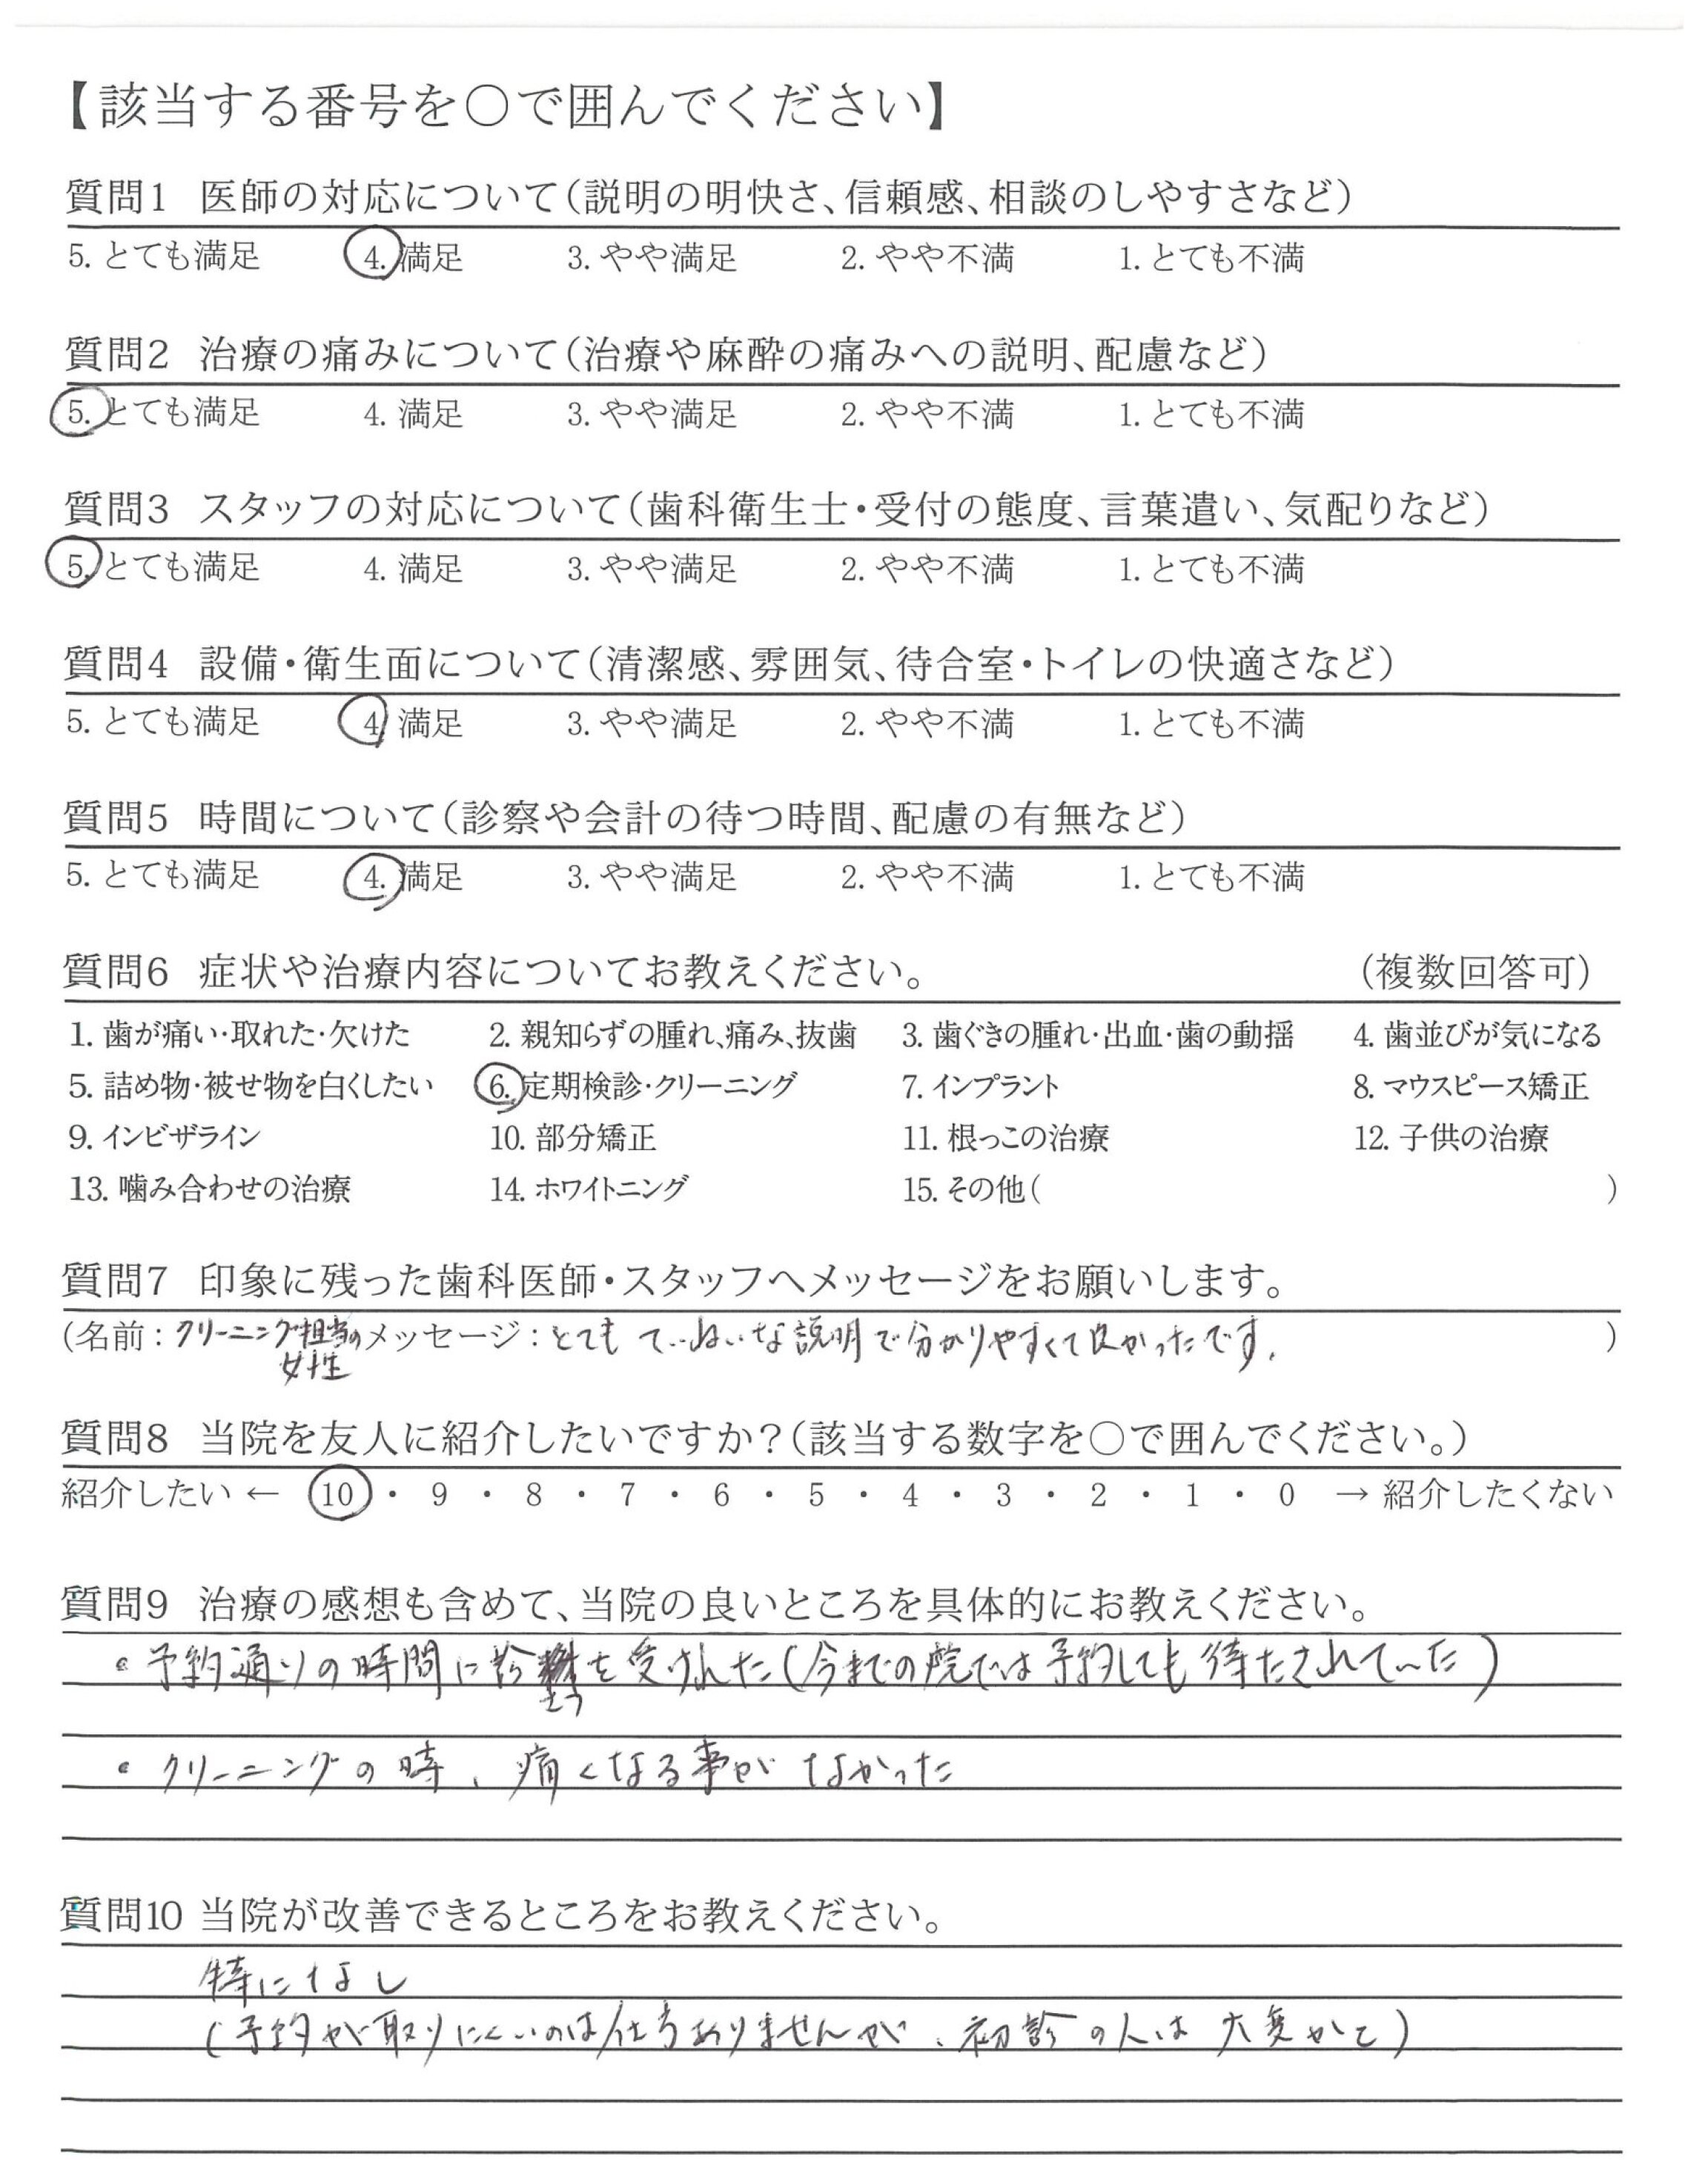 【該当する番号を○で囲んでください】
質問1 医師の対応について(説明の明快さ、信頼感、相談のしやすさなど)
5. とても満足 4. 満足 3. やや満足 2. やや不満 1. とても不満
質問2 治療の痛みについて(治療や麻酔の痛みへの説明、配慮など)
5. とても満足 4. 満足 3. やや満足 2. やや不満 1. とても不満
質問3 スタッフの対応について(歯科衛生士・受付の態度、言葉遣い、気配りなど)
5. とても満足 4. 満足 3. やや満足 2. やや不満 1. とても不満
質問4 設備・衛生面について(清潔感、雰囲気、待合室・トイレの快適さなど)
5. とても満足 4. 満足 3. やや満足 2. やや不満 1. とても不満
質問5 時間について(診察や会計の待つ時間、配慮の有無など)
5. とても満足 4. 満足 3. やや満足 2. やや不満 1. とても不満
質問6 症状や治療内容についてお教えください。 (複数回答可)
1. 歯が痛い・取れた・欠けた 2. 親知らずの腫れ、痛み、抜歯 3. 歯ぐきの腫れ・出血・歯の動揺 4. 歯並びが気になる
5. 詰め物・被せ物を白くしたい 6. 定期検診・クリーニング 7. インプラント 8. マウスピース矯正
9. インビザライン 10. 部分矯正 11. 根っこの治療 12. 子供の治療
13. 噛み合わせの治療 14. ホワイトニング 15. その他( )
質問7 印象に残った歯科医師・スタッフへメッセージをお願いします。
(名前:クリーニング担当の メッセージ:とても ていねいな説明で分かりやすくて良かったです。 )
女性
質問8 当院を友人に紹介したいですか?(該当する数字を○で囲んでください。)
紹介したい ← 10 ・ 9 ・ 8 ・ 7 ・ 6 ・ 5 ・ 4 ・ 3 ・ 2 ・ 1 ・ 0 → 紹介したくない
質問9 治療の感想も含めて、当院の良いところを具体的にお教えください。
・予約通りの時間に診を受けれた(今までの院では予約しても待たされていた)
さつ
・クリーニングの時、痛くなる事がなかった
質問10 当院が改善できるところをお教えください。
特になし
(予約が取りにくいのは仕方ありませんが、初診の人は大変かと)